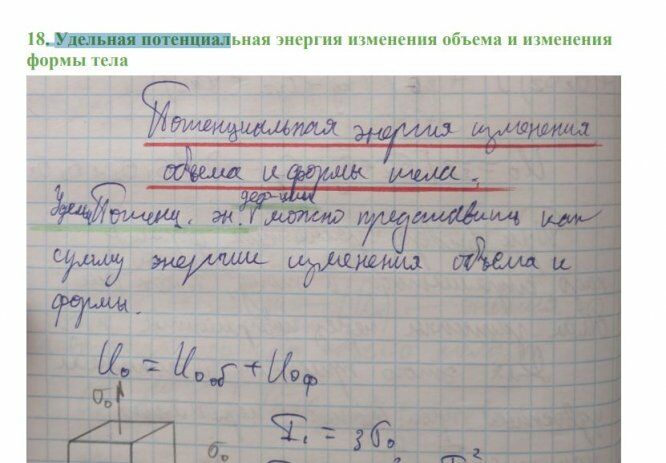 18. Удельная потенциальная энергия изменения объема и изменения
формы тела
Потенциальная энергия изменения
объема и формы тела.
Удел. Потенц. эн. деф-ции можно представить как
сумму энергии изменения объема и
формы.
U₀ = U₀об + U₀ф
σ₀
I₁ = 3σ₀
σ₀